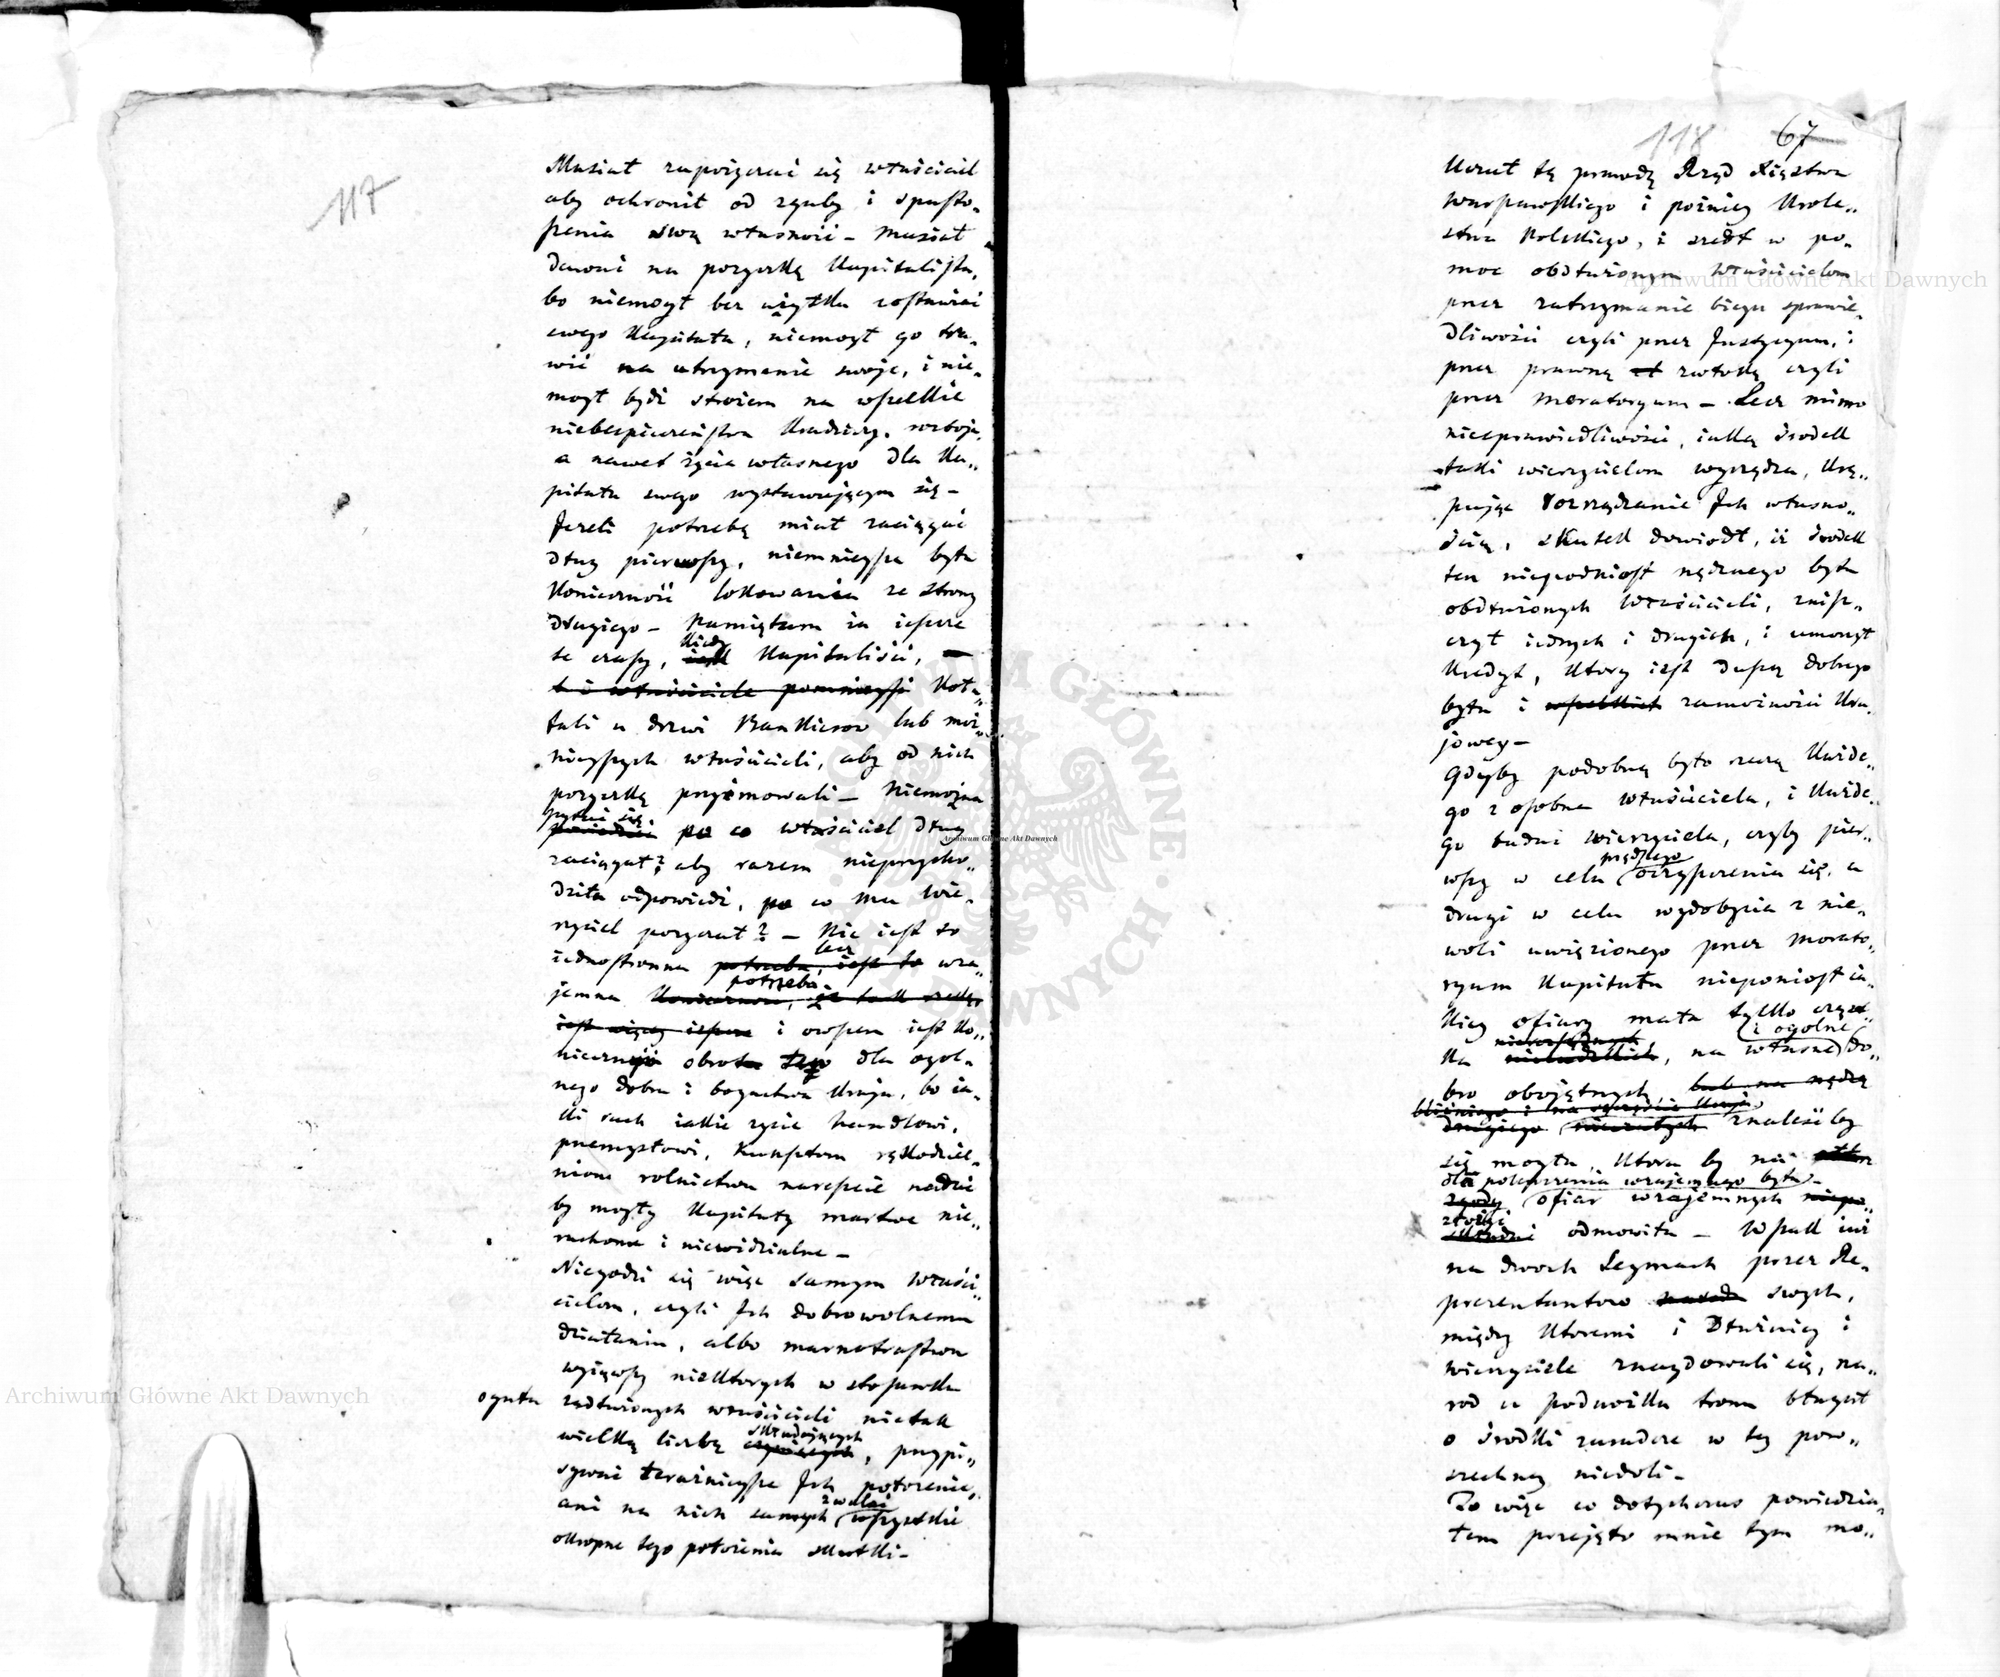 117
Musiał zapożyczać się właściciel
aby ochronił od zguby i spusto„
szenia swą własność – Musiał
dawać na pożyczkę Kapitalista,
bo niemogł bez użytku zostawiać
swego Kapitału, niemogł go tra„
wić na utrzymanie swoje, i nie„
mogł bydź strożem na wszelkie
niebespieczeństwa Kradzieży, rozboju,
a nawet życia własnego dla Ka„
pitału swego wystawiającym się –
Jeżeli potrzebę miał zaciągać
dług pierwszy, niemnieysza była
Konieczność lokowania ze strony
drugiego – Pamiętam ia ieszcze
te czasy, kiedy Kapitaliści,
t i właściciele pomnieysi Koła„
tali u drzwi Bankierow lub moż„
nieyszych właścicieli, aby od nich
pożyczkę przyimowali – Niemożna
pytać się
powiedzieć po co właściciel dług
zaciągał? aby razem nieprzycho„
dziła odpowiedź, po co mu Wie„
rzyciel pożyczał? – Nie iest to
lecz
iednostronna potrzeba, iest to wza„
potrzeba
jemna Konieczność, że tak rzekę
iest więcey ieszcze i owszem iest Ko„
nieczność obrotu tego dla ogol„
nego dobra i bogactwa Kraju, bo ia„
ki ruch iakie życie handlowi,
przemysłowi, Kunsztom rękodziel„
niom rolnictwu nareszcie nadać
by mogły Kapitały martwe nie„
ruchome i niewidzialne –
Niegodzi się więc samym Właści„
cielom, czyli Jch dobrowolnemu
działaniu, albo marnotrastwu
wyiąwszy niektorych w stosunku
ogułu zadłużonych właścicieli nietak
składaiących
wielką liczbę czyniących, przypi„
sywać teraźnieysze Jch położenie,
zwalać
ani na nich samych wszystkie
okropne tego położenia skutki –
118 67
Uczuł tę prawdę Rząd Xięstwa
Warszawskiego i poźniey Krole„
stwa Polskiego, i szedł w po„
moc obdłużonym Właścicielom
przez zatrzymanie biegu sprawie„
dliwości czyli przez Justycyum, i
przez prawną zwłokę czyli
przez Moratoryum – Lecz mimo
niesprawiedliwości, iaką środek
taki wierzycielom wyrządza, Krę„
pując rozrządzanie Jch własno„
ścią, skutek dowiodł, iż środek
ten niepodniosł nędznego bytu
obdłużonych Właścicieli, znisz„
czył iednych i drugich, i umorzył
Kredyt, Ktory iest duszą dobrego
bytu i wszelkich zamożności Kra„
jowey –
Gdyby podobną było rzeczą Każde„
go z osobna Właściciela, i Każde„
go badać Wierzyciela, czyby pier„
prędszego
wszy w celu oczyszczenia się, a
drugi w celu wydobycia z nie„
woli uwięzionego przez Morato„
ryum Kapitału nieponiosł ia„
kiey ofiary mała tylko cząst„
i ogolne
ka nieludzkich, na własne do„
bro obojętnych lub na nędzę
bliźniego i na szczęście Kraju
drugiego nieczułych znaleźć by
się mogła, Ktora by na
dla polepszenia wzajemnego bytu –
zgodę ofiar wzajemnych
złożyć
składać odmowiła – Wszak iuż
na dwoch Seymach przez Re„
prezentantow swych,
między Ktoremi i Dłużnicy i
wierzyciele znaydowali się, na„
rod u podnożka tronu błagał
o środki zaradcze w tey pow„
szechney niedoli –
To więc co dotychczas powiedzia„
łem przejęło mnie tym mo„
Archiwum Główne Akt Dawnych
Archiwum Główne Akt Dawnych
Archiwum Główne Akt Dawnych